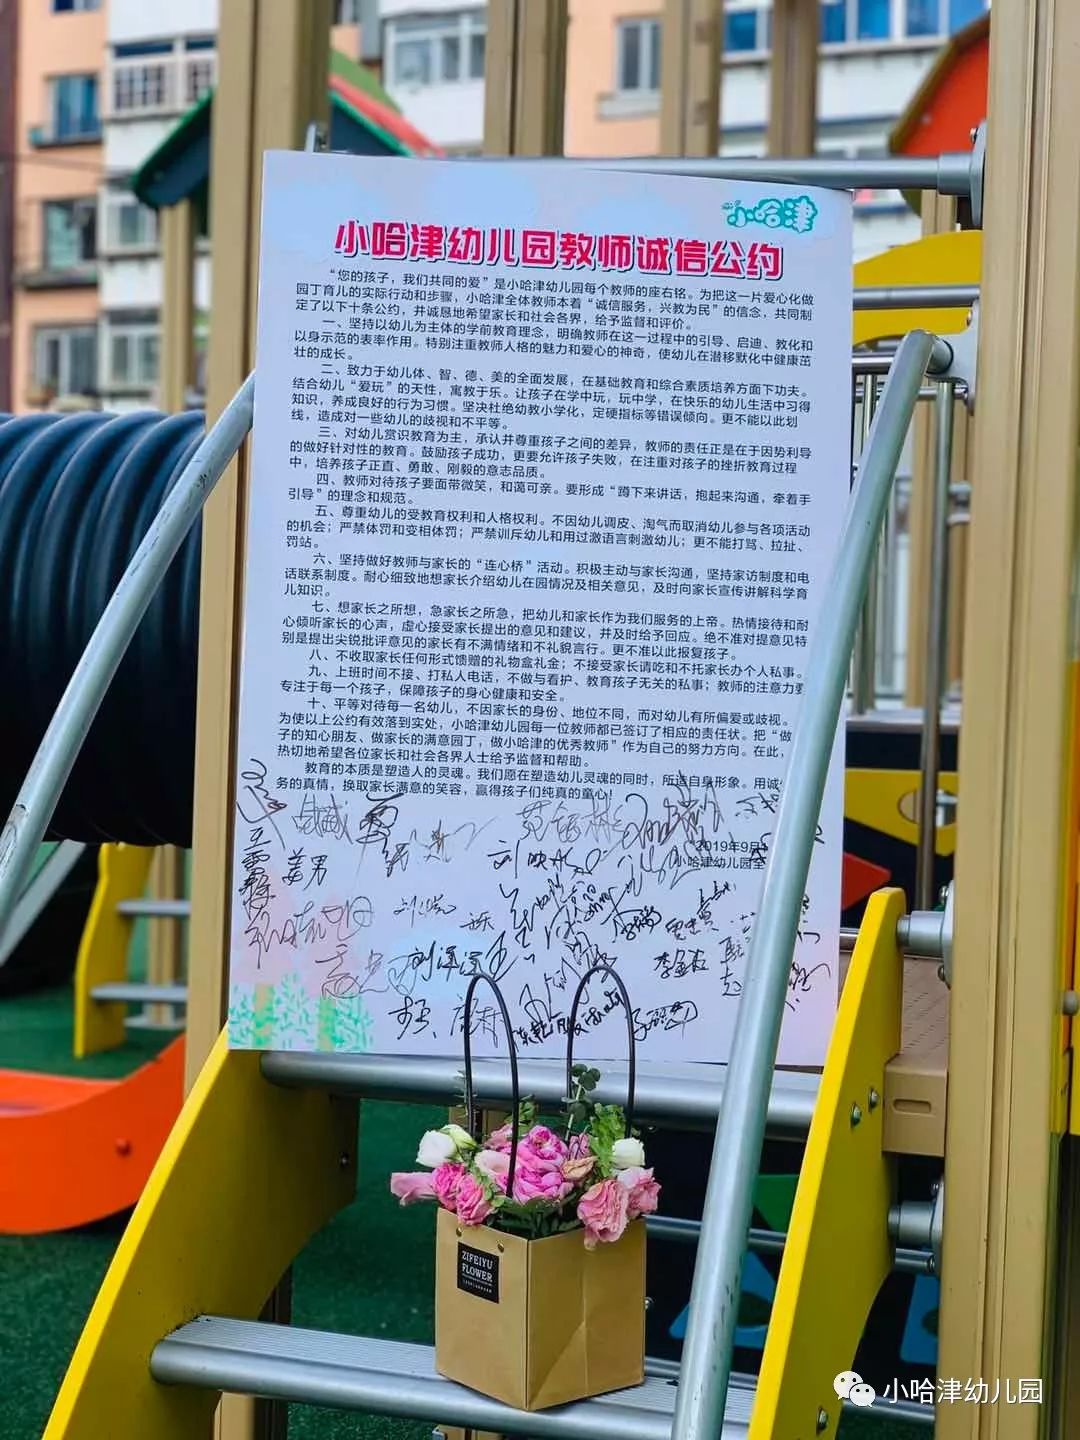 小哈津
小哈津幼儿园教师诚信公约
“您的孩子，我们共同的爱”是小哈津幼儿园每个教师的座右铭。为把这一片爱心化做
园丁育儿的实际行动和步骤，小哈津全体教师本着“诚信服务，兴教为民”的信念，共同制
定了以下十条公约，并诚恳地希望家长和社会各界，给予监督和评价。
一、坚持以幼儿为主体的学前教育理念，明确教师在这一过程中的引导、启迪、教化和
以身示范的表率作用。特别注重教师人格的魅力和爱心的神奇，使幼儿在潜移默化中健康茁
壮的成长。
二、致力于幼儿体、智、德、美的全面发展，在基础教育和综合素质培养方面下功夫。
结合幼儿“爱玩”的天性，寓教于乐。让孩子在学中玩，玩中学，在快乐的幼儿生活中习得
知识，养成良好的行为习惯。坚决杜绝幼教小学化，定硬指标等错误倾向。更不能以此划
线，造成对一些幼儿的歧视和不平等。
三、对幼儿赏识教育为主，承认并尊重孩子之间的差异，教师的责任正是在于因势利导
的做好针对性的教育。鼓励孩子成功，更要允许孩子失败，在注重对孩子的挫折教育过程
中，培养孩子正直、勇敢、刚毅的意志品质。
四、教师对待孩子要面带微笑，和蔼可亲。要形成“蹲下来讲话，抱起来沟通，牵着手
引导”的理念和规范。
五、尊重幼儿的受教育权利和人格权利。不因幼儿调皮、淘气而取消幼儿参与各项活动
的机会；严禁体罚和变相体罚；严禁训斥幼儿和用过激语言刺激幼儿；更不能打骂、拉扯、
罚站。
六、坚持做好教师与家长的“连心桥”活动。积极主动与家长沟通，坚持家访制度和电
话联系制度。耐心细致地想家长介绍幼儿在园情况及相关意见，及时向家长宣传讲解科学育
儿知识。
七、想家长之所想，急家长之所急，把幼儿和家长作为我们服务的上帝。热情接待和耐
心倾听家长的心声，虚心接受家长提出的意见和建议，并及时给予回应。绝不准对提意见特
别是提出尖锐批评意见的家长有不满情绪和不礼貌言行。更不准以此报复孩子。
八、不收取家长任何形式馈赠的礼物盒礼金；不接受家长请吃和不托家长办个人私事。
九、上班时间不接、打私人电话，不做与看护、教育孩子无关的私事；教师的注意力要
专注于每一个孩子，保障孩子的身心健康和安全。
十、平等对待每一名幼儿，不因家长的身份、地位不同，而对幼儿有所偏爱或歧视。
为使以上公约有效落到实处，小哈津幼儿园每一位教师都已签订了相应的责任状。把“做
子的知心朋友、做家长的满意园丁，做小哈津的优秀教师”作为自己的努力方向。在此，
热切地希望各位家长和社会各界人士给予监督和帮助。
教育的本质是塑造人的灵魂。我们愿在塑造幼儿灵魂的同时，所造自身形象。用诚
务的真情，换取家长满意的笑容，赢得孩子们纯真的童心！
2019年9月
小哈津幼儿园全
姜男
刘泽
ZIFEIYU
FLOWER
小哈津幼儿园